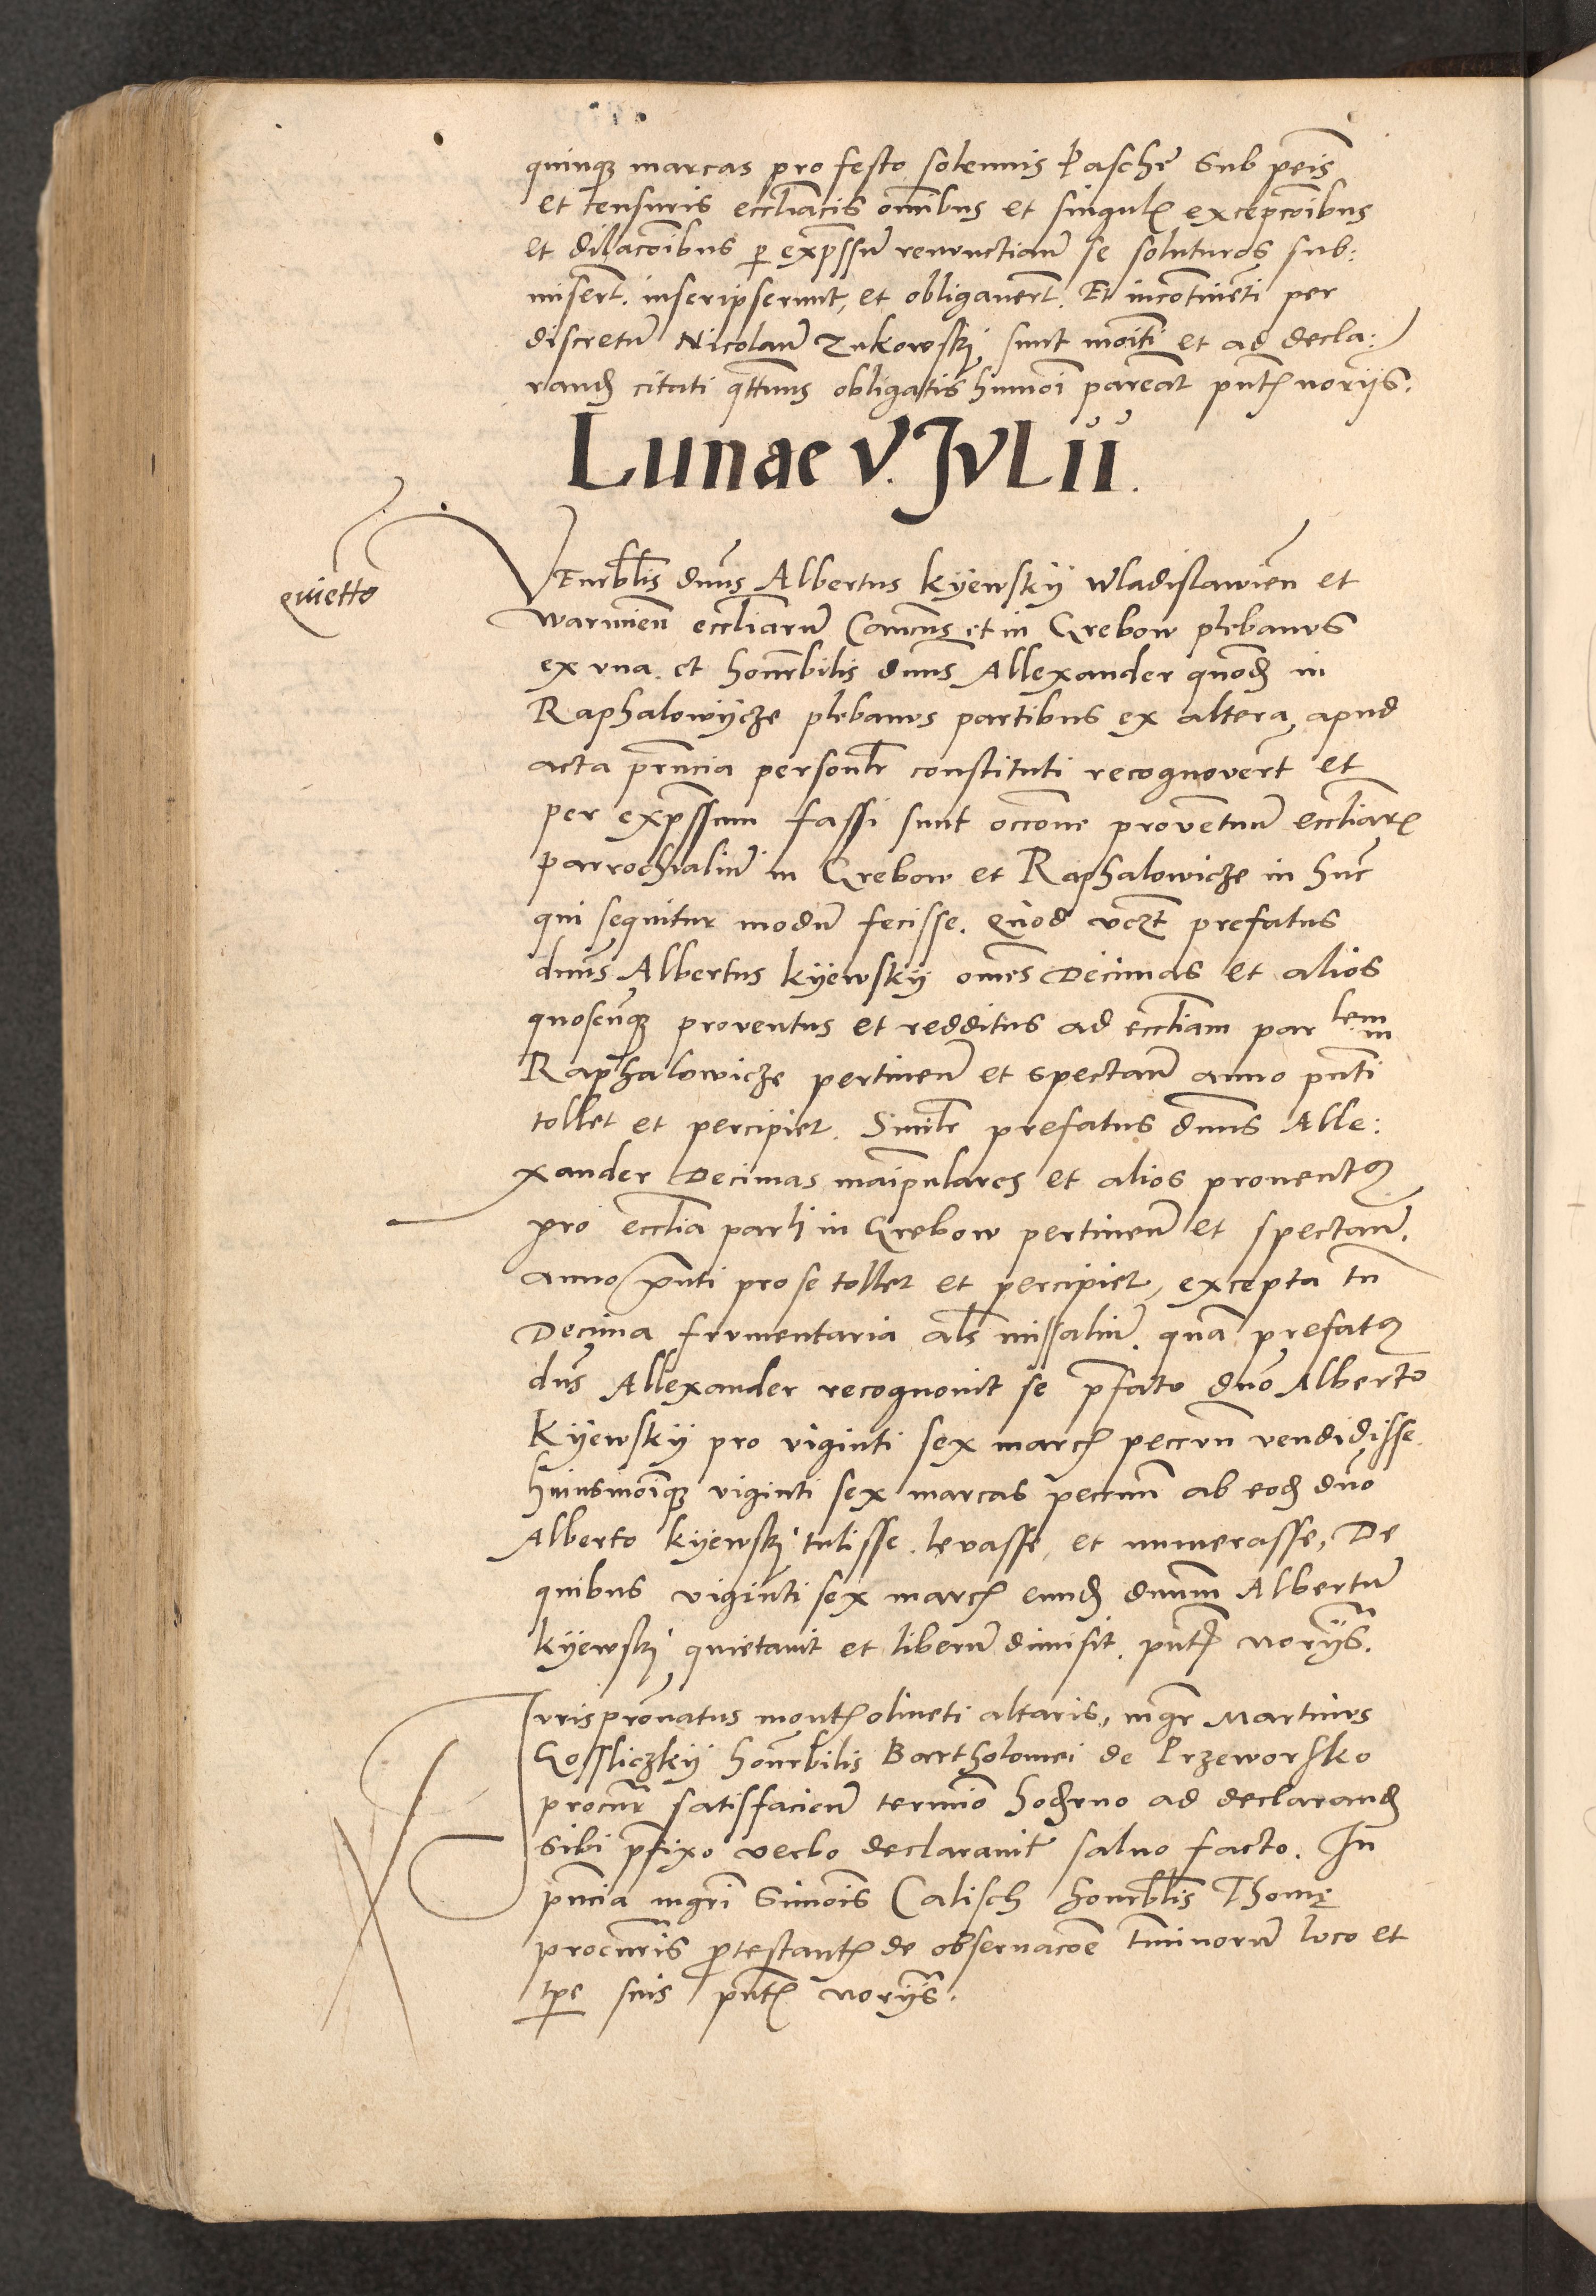 quinqꝫ marcas pro festo solemnis Pasche Sub peis
et censuris eccliacis omibus et singul excepcoibus
et dilacoibus p expssu renuctiau se soluturos sub:
misert. inscripserunt, et obligauert. Et incotineti per
discretu Nicolau Zukowskj sunt moiti et ad decla:
rand citati qttnus obligatis humoi pareat pnt noriis.
Lunae V. JVLii.
quietto
VEnrblis dnus Albertus Kyewsky Wladislawien et
warmien eccliaru Cancus et in Grebow plebanus
ex vna. et honrbilis dnus Allexander quod in
Raphalowycze plebanus partibus ex altera, apud
acta pruncia personlr constituti recognouert et
per expssum fassi sunt occone prouentuu eccliar
parrochialiu in Grebow et Raphalowicze in huc
qui sequitur modu fecisse. Quod vczt prefatus
dnus Albertus Kyewsky omes Decimas et alios
quoscuqꝫ prouentus et redditus ad eccliam par lem
in
Raphalowicze pertinen et spectan anno pnti
tollet et percipiet. Similr prefatus dnus Alle:
xander Decimas maipulares et alios prouentus
pro ecclia parli in Grebow pertinen et spectan.
anno pnti pro se tollet et percipiet, excepta tn
Decima frumentaria als missaliu. qua prefatus
dns Allexander recognouit se pfato dno Alberto
Kyewsky pro viginti sex marc peccun vendidisse.
huiusmoiqꝫ viginti sex marcas peccun ab eod dno
Alberto Kyewskj tulisse. levasse, et numerasse, De
quibus viginti sex marc eund dnum Albertu
Kyewskj quietauit et liberu dimisit. pnt noriis.
Jurispronatus mont oliueti altaris, mgr Martinus
Gosliczky honrbilis Bartholomei de Przeworsko
procur satisfacien termio hodierno ad declarand
sibi pfixo verbo declarauit saluo facto. In
pncia mgri Simois Calisch honrblis Thome
procuris protestant de obseruacoe tminoru loco et
tpe suis pnt noriis.